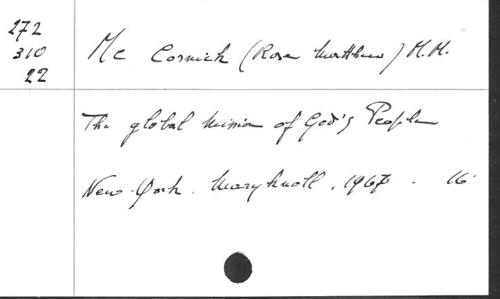 272
310
22
Mc Cormick (Rose Matthew) M.M.
The global mission of God's People
New-York. Maryknoll, 1967. 16